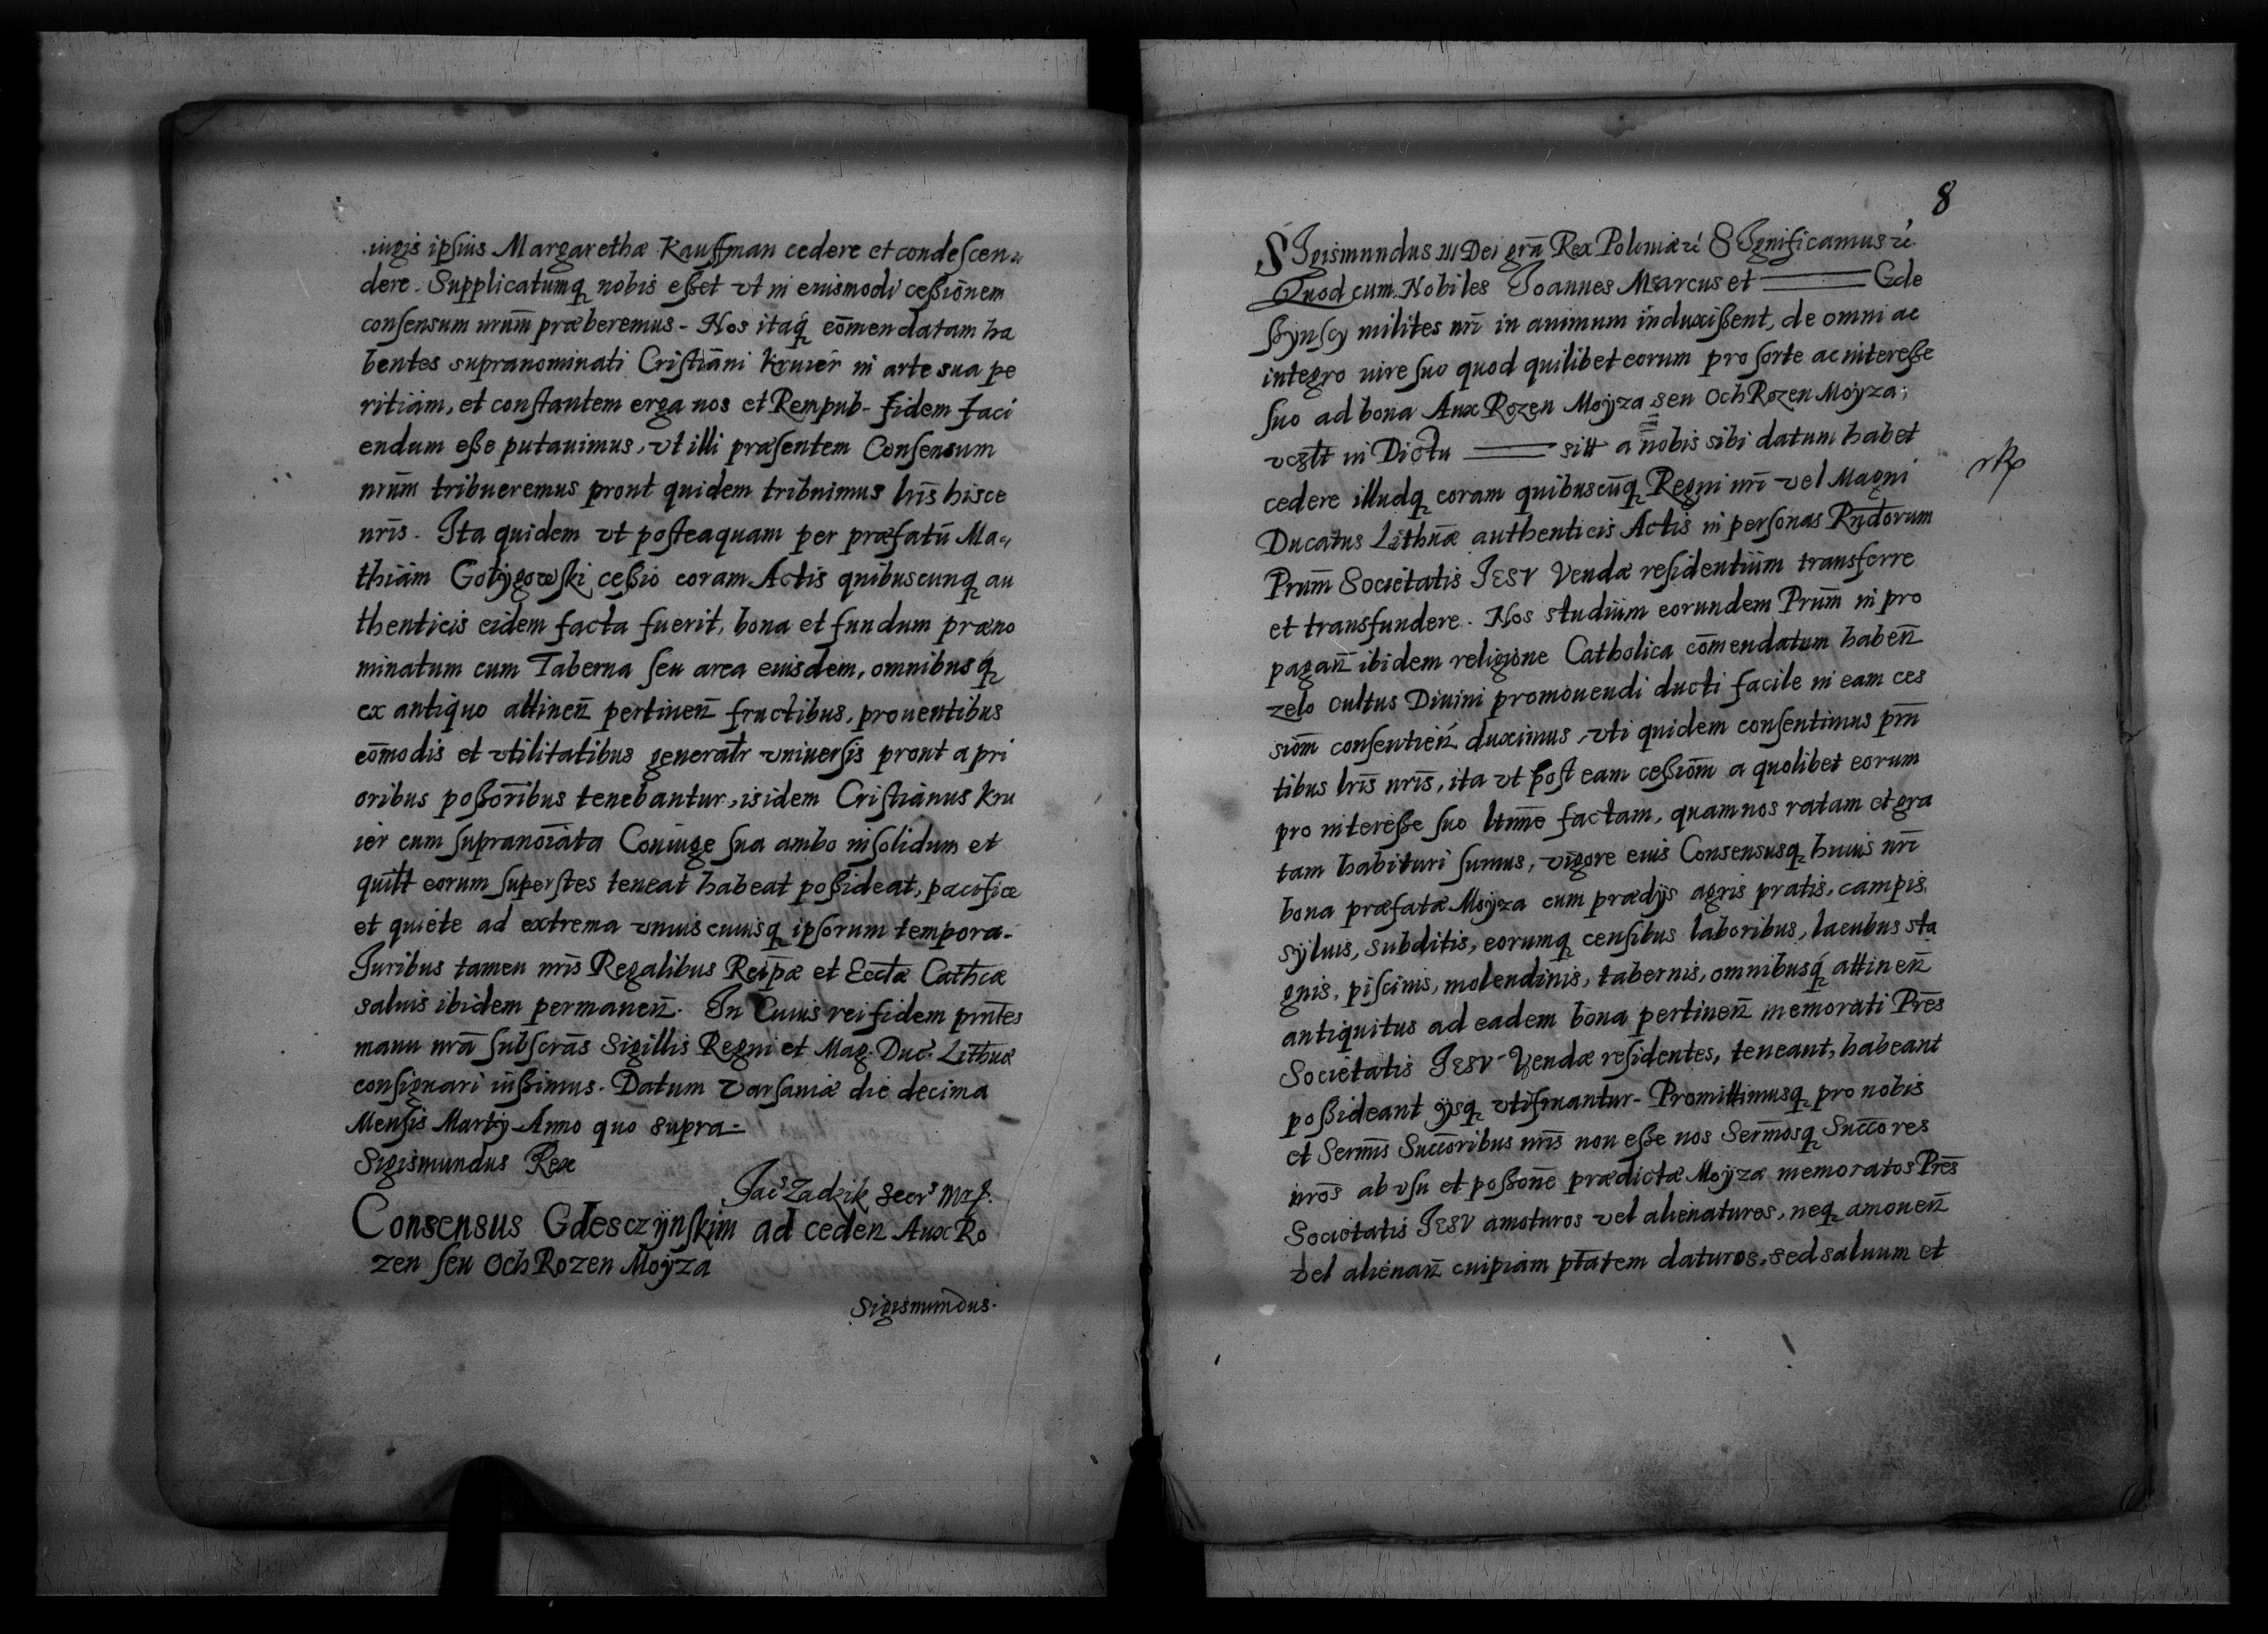 iugis ipsius Margarethæ Kauffman cedere et condescen
dere. Supplicatumq nobis eßet vt in eiusmodi ceßionem
consensum nrum̄ præberemus. Nos itaq́ cōmendatam ha
bentes supranominati Cristiani Kruier in arte sua pe
ritiam, et constantem erga nos et Rempub. fidem faci
endum eße putauimus, vt illi præsentem Consensum
nrum̄ tribueremus prout quidem tribuimus lrīs hisce
nrīs. Ita quidem vt posteaquam per præfatū Ma
thiam Gołygowski ceßio coram Actis quibuscunq au
thenticis eidem facta fuerit, bona et fundum præno
minatum cum Taberna seu area eiusdem, omnibusq́
ex antiquo attinen̄ pertinen̄ fructibus, prouentibus
cōmodis et vtilitatibus generalr vniuersis prout a pri
oribus poßorībus tenebantur, is idem Cristianus Kru
ier cum supranoīata Coniuge sua ambo insolidum et
quilt eorum superstes teneat habeat poßideat, pacifice
et quiete ad extrema vniuscuiusq ipsorum tempora.
Juribus tamen nrīs Regalibus Reip̄æ et Eccłæ Cathcæ
saluis ibidem permanen̄. In Cuius rei fidem prn̄tes
manu nrā subscrās Sigillis Regni et Mag. Duc. Lithuæ
consignari iußimus. Datum Varsauiæ die decima
Mensis Martij Anno quo supra.
Sigismundus Rex
Jac Zadzik Secr mp.
Consensus Gdesczÿnskim ad ceden Aux Ro
zen seu Och Rozen Moÿza
Sigismundus.
8
SIgismundus III Dei grā Rex Poloniæ SIgnificamus
Quod cum Nobiles Joannes Marcus et Gde
ßÿnscy milites nrī in animum induxißent, de omni ac
integro iure suo quod quilibet eorum pro sorte ac intereße
suo ad bona Aux Rozen Moÿza seu Och Rozen Moÿza,
in Dictu sitt a nobis sibi datum habet
cedere illudq coram quibuscūq Regni nrī vel Magni
Ducatus Lithuæ authenticis Actis in personas Rndorum
Prum̄ Societatis IESV Vendæ residentium transferre
et transfundere. Nos studium eorundem Prum̄ in pro
pagan̄ ibidem religione Catholica cōmendatum haben̄
zelo cultus Diuini promouendi ducti facile in eam ces
siom̄ consentien̄ duximus, vti quidem consentimus prn̄
tibus lrīs nrīs, ita vt post eam ceßiom̄ a quolibet eorum
pro intereße suo factam, quam nos ratam et gra
tam habituri sumus, vigore eius Consensusq huius nrī
bona præfata Moÿza cum prædijs agris pratis, campis,
syluis, subditis, eorumq censibus laboribus, lacubus sta
gnis, piscinis, molendinis, tabernis, omnibusq́ attinen̄
antiquitus ad eadem bona pertinen̄ memorati Prēs
Societatis IESV Vendæ residentes, teneant, habeant
poßideant ijsq vtifruantur. Promittimusq pro nobis
et Serm̄is Succ̄oribus nrīs non eße nos Serm̄osq Succ̄ores
nrōs ab vsu et poßone prædictæ Moÿza memoratos Prēs
Societatis IESV amoturos vel alienaturos, neq amouen̄
vel alienan̄ cuipiam ptatem daturos, sed saluum et